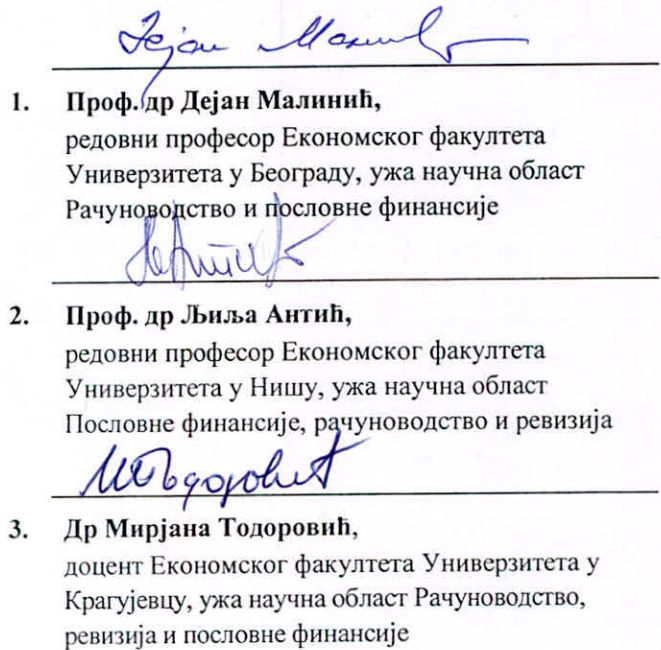 Дејан Малинић
1. Проф. др Дејан Малинић,
редовни професор Економског факултета
Универзитета у Београду, ужа научна област
Рачуноводство и пословне финансије
2. Проф. др Љиља Антић,
редовни професор Економског факултета
Универзитета у Нишу, ужа научна област
Пословне финансије, рачуноводство и ревизија
МТодоровић
3. Др Мирјана Тодоровић,
доцент Економског факултета Универзитета у
Крагујевцу, ужа научна област Рачуноводство,
ревизија и пословне финансије